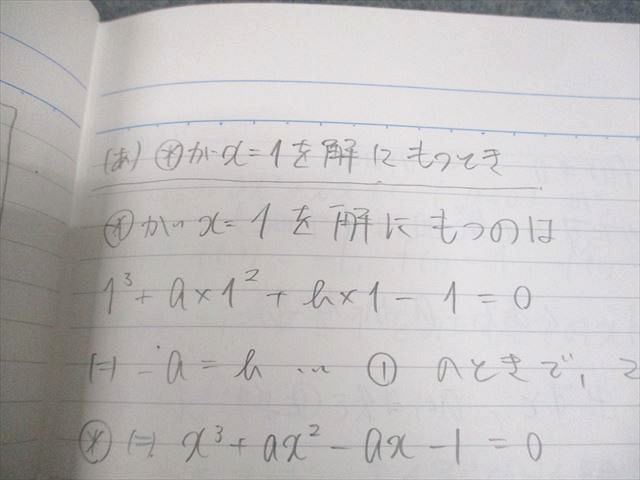 (あ) ⊛が x=1を解にもつとき
⊛が x=1を解にもつのは
1³+a×1²+b×1-1=0
⇔ -a=b … ① のときで,
⊛ ⇔ x³+ax²-ax-1=0